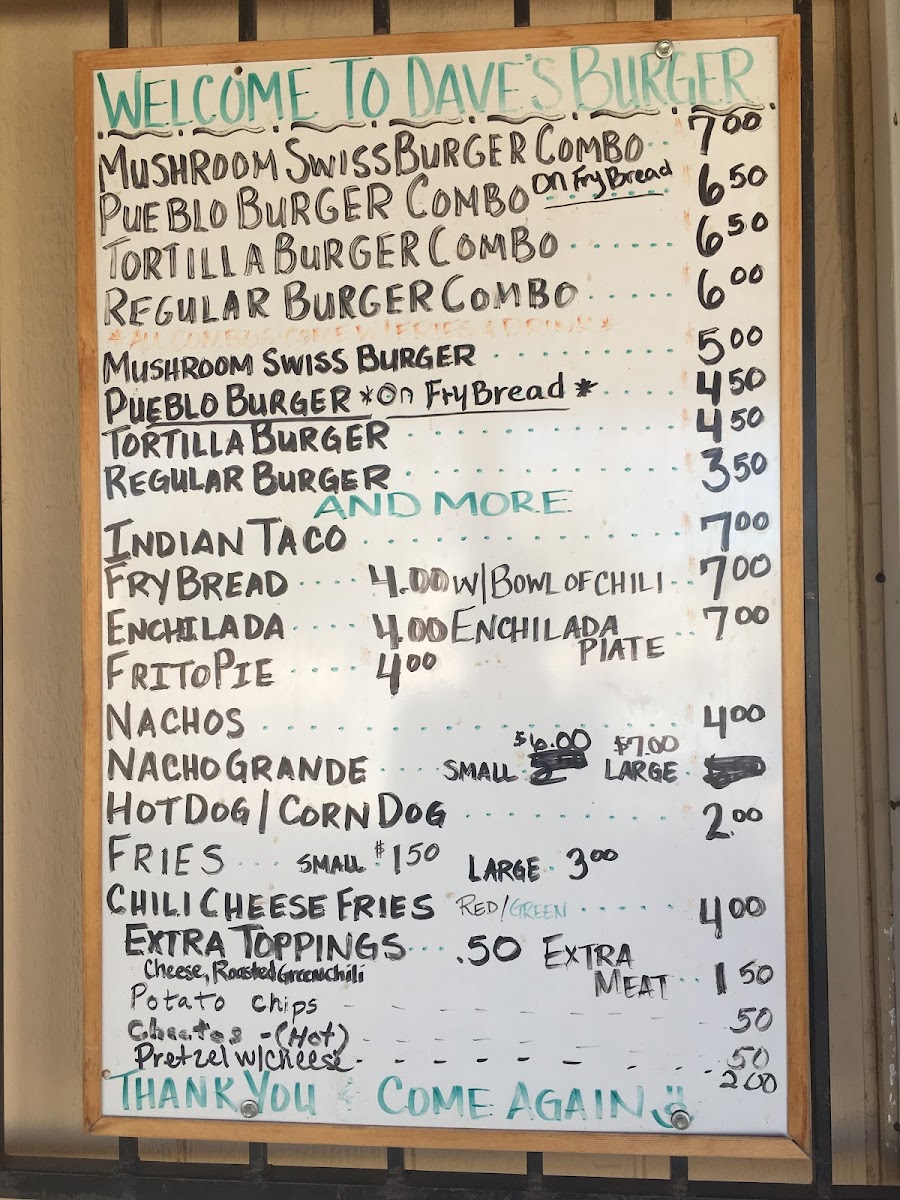 WELCOME TO DAVE'S BURGER
MUSHROOM SWISS BURGER COMBO 7.00
PUEBLO BURGER COMBO on Fry Bread 6.50
TORTILLA BURGER COMBO 6.50
REGULAR BURGER COMBO 6.00
*ALL COMBOS COME W/ FRIES & DRINK*
MUSHROOM SWISS BURGER 5.00
PUEBLO BURGER *On Fry Bread* 4.50
TORTILLA BURGER 4.50
REGULAR BURGER 3.50
AND MORE
INDIAN TACO 7.00
FRY BREAD 4.00 W/ BOWL OF CHILI 7.00
ENCHILADA 4.00 ENCHILADA PLATE 7.00
FRITO PIE 4.00
NACHOS 4.00
NACHO GRANDE SMALL $6.00 LARGE $7.00
HOT DOG / CORN DOG 2.00
FRIES SMALL $1.50 LARGE 3.00
CHILI CHEESE FRIES RED/GREEN 4.00
EXTRA TOPPINGS .50 EXTRA MEAT 1.50
Cheese, Roasted Green chili
Potato chips .50
Cheetos - (Hot) .50
Pretzel w/cheese 2.00
THANK YOU & COME AGAIN